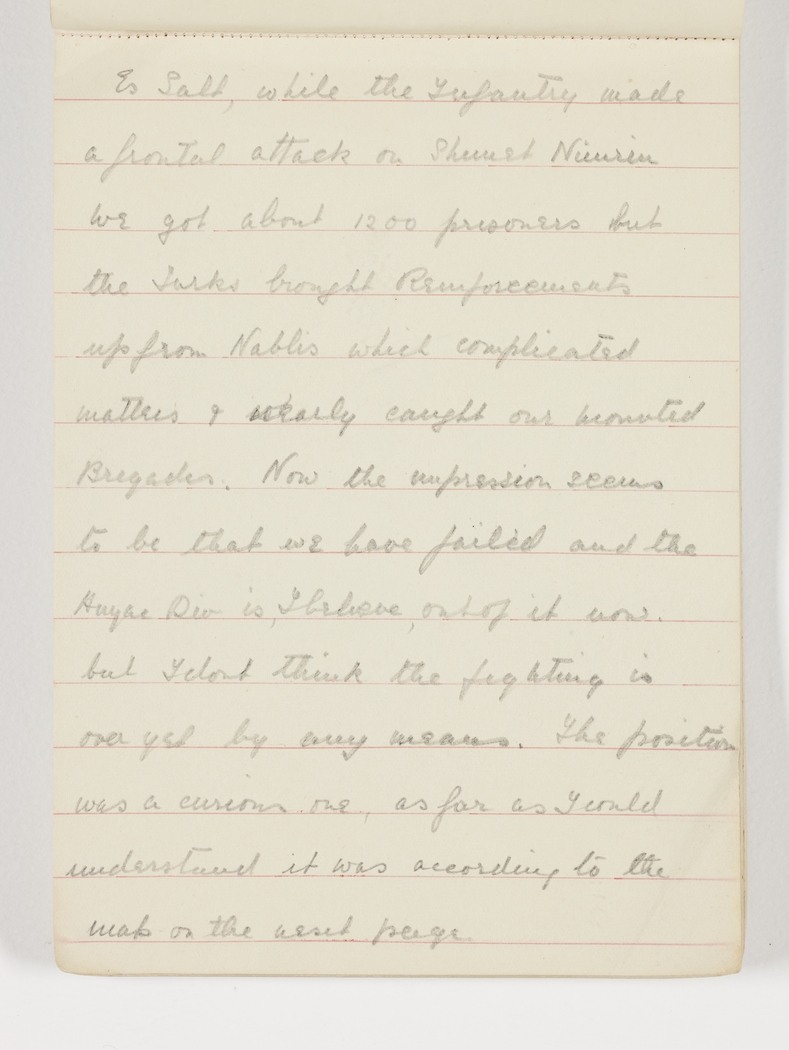 Es Salt, while the Infantry made
a frontal attack on Shunet Nimrin
we got about 1200 prisoners but
the Turks brought Reinforcements
up from Nablis which complicated
matters & nearly caught our mounted
Brigades. Now the impression seems
to be that we have failed and the
Anzac Div is, I believe, out of it now.
but I dont think the fighting is
over yet by any means. The position
was a curious one, as far as I could
understand it was according to the
map on the next page